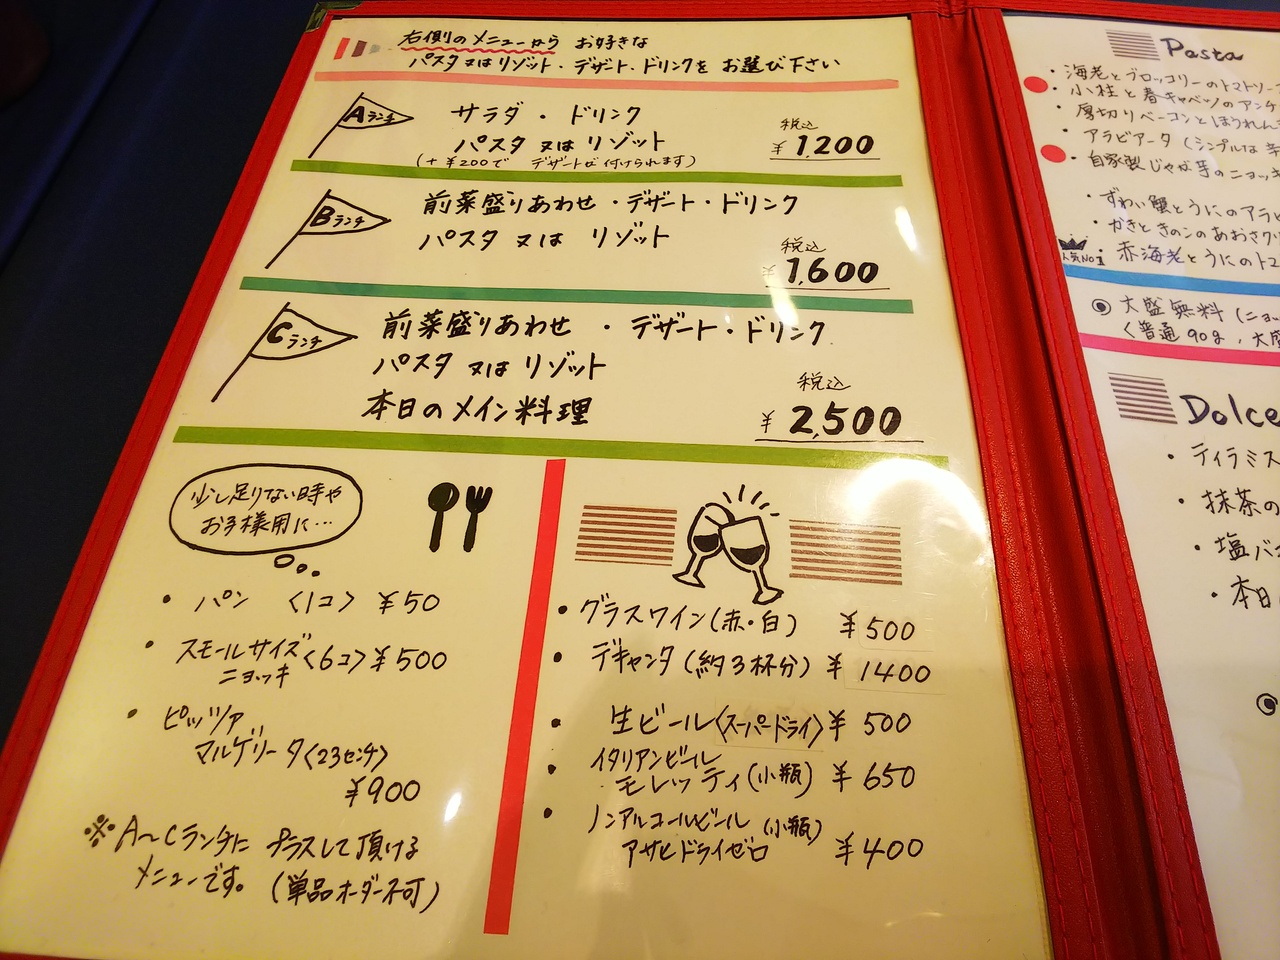 右側のメニューから お好きな
パスタ又はリゾット・デザート・ドリンクを お選び下さい
Aランチ
サラダ・ドリンク
パスタ 又は リゾット
(+¥200で デザートが付けられます)
税込
¥1,200
Bランチ
前菜盛りあわせ・デザート・ドリンク
パスタ 又は リゾット
税込
¥1,600
Cランチ
前菜盛りあわせ・デザート・ドリンク
パスタ 又は リゾット
本日のメイン料理
税込
¥2,500
少し足りない時や
お子様用に…
・パン 〈1コ〉 ¥50
・スモールサイズ
ニョッキ〈6コ〉¥500
・ピッツァ
マルゲリータ〈23センチ〉
¥900
※A〜Cランチに プラスして頂ける
メニューです。(単品オーダー不可)
・グラスワイン(赤・白) ¥500
・デキャンタ(約3杯分) ¥1400
・生ビール〈スーパードライ〉¥500
・イタリアンビール
モレッティ(小瓶) ¥650
・ノンアルコールビール (小瓶)
アサヒドライゼロ ¥400
Pasta
・海老とブロッコリーのトマトソー
・小柱と春キャベツのアンチ
・厚切りベーコンとほうれん
・アラビアータ(シンプルな辛
・自家製じゃが芋のニョッキ
・ずわい蟹とうにのアラビ
・かきときのこのあおさクリ
人気No1
・赤海老とうにのトマ
◎大盛無料(ニョッ
〈普通90g、大盛
Dolce
・ティラミス
・抹茶の
・塩バ
・本日